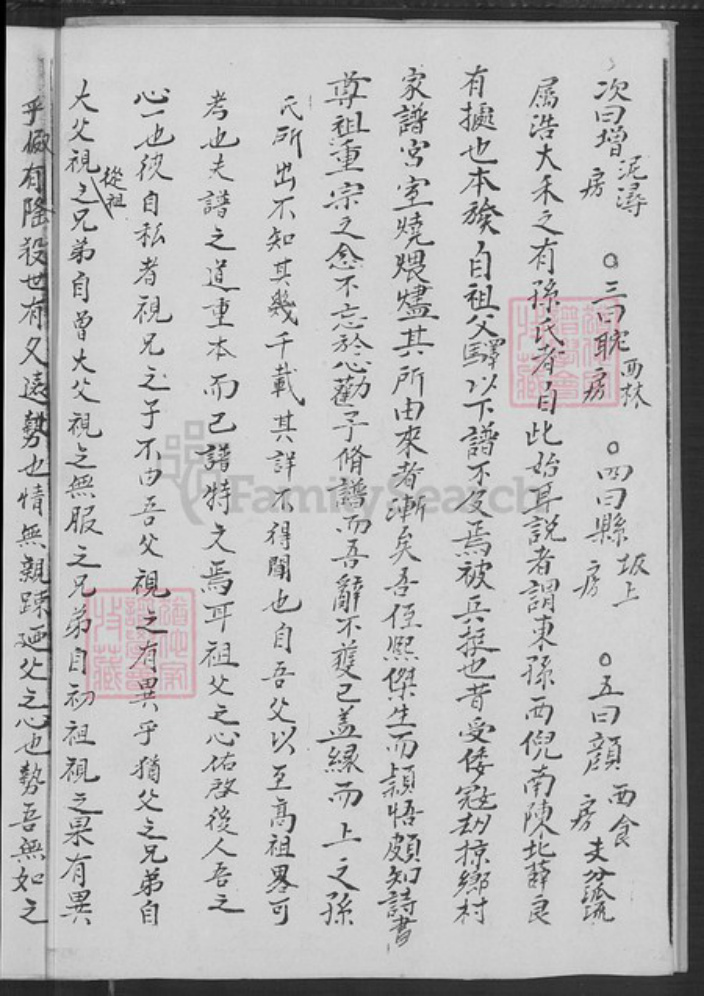 次曰增泥潯房 ○三曰聡西林房 ○四曰縣坂上房 ○五曰顔西食房 支分派流
属浩大禾之有孫氏者自此始耳説者謂東孫西倪南陳北薛良
有據也本族自祖父驛以下譜不及焉被兵擾也昔受倭寇刼掠鄉村
家譜宮室燒煨燼其所由來者漸矣吾侄熙傑生而穎悟頗知詩書
尊祖重宗之念不忘於心勸予脩譜而吾辭不獲已盖緣而上之孫
氏所出不知其幾千載其詳不得聞也自吾父以至高祖畧可
考也夫譜之道重本而已譜特文焉耳祖父之心佑啓後人吾之
心一也彼自私者視兄之子不由吾父視之有異乎猶父之兄弟自
大父視之從祖兄弟自曾大父視之無服之兄弟自初祖視之果有異
乎倣有隆殺世有久遠勢也情無親疎廼父之心也勢吾無如之
FamilySearch